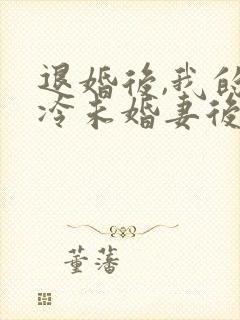 退婚後,我的
冷未婚妻後
董藩